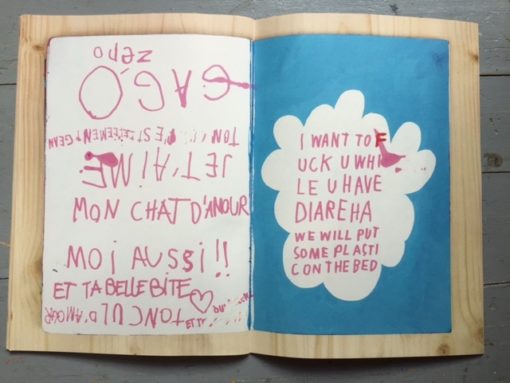 zéro
GAGO
JE T'AIME
MON CHAT D'AMOUR
MOI AUSSI !!
ET TA BELLE BITE
TON CUL D'AMOUR
I WANT TO F
UCK U WHI
LE U HAVE
DIAREHA
WE WILL PUT
SOME PLASTI
C ON THE BED